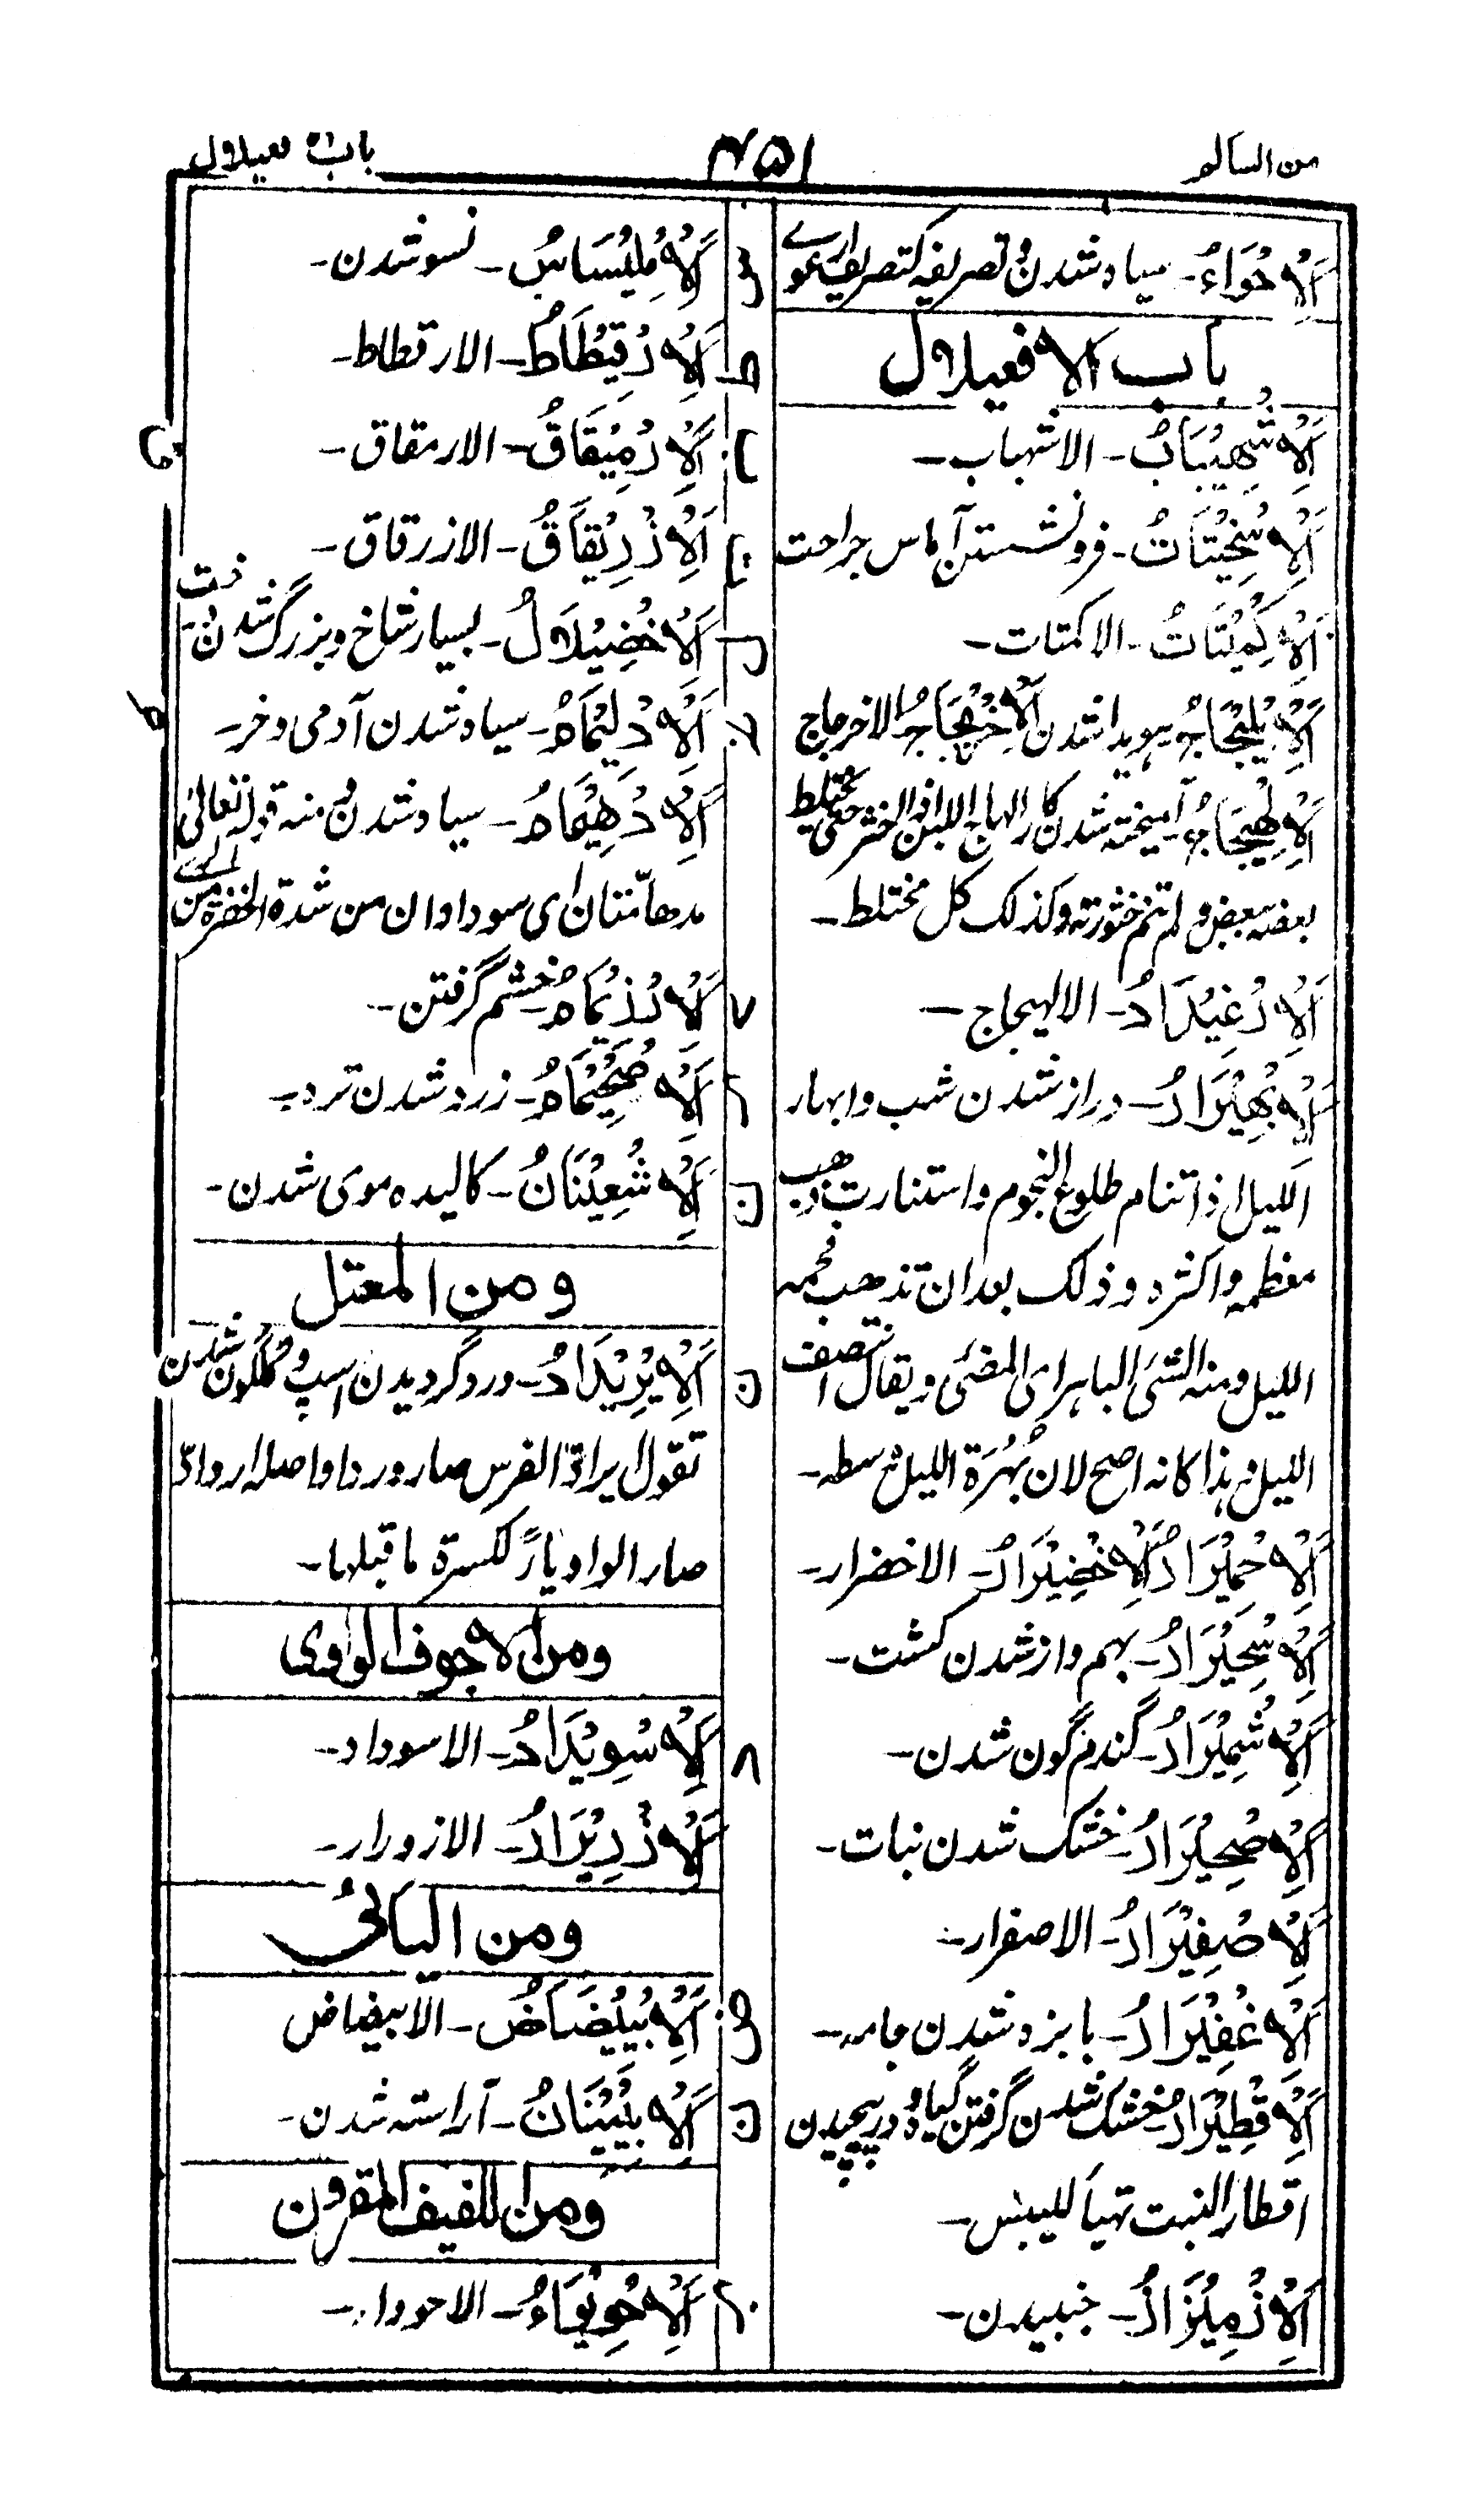 من السالم
۴۵۱
باب افعیلال
اَلْاِحْوَاءُ۔ سیاہ شدن و تصریفہ کتصریف ارعوے
باب الافعیلال
اَلْاِشْهِيْبَابُ۔ الاشہباب۔
اَلْاِسْخِيْتَاتُ۔ فرو نشستن آماس جراحت
اَلْاِكْمِيْتَاتُ۔ الاکمتات۔
اَلْاِبْلِيْجَاجُ ہویدا شدن اَلْاِخْرِيْجَاجُ الاخرجاج
اَلْاِلْهِيْجَاجُ۔ آمیختہ شدن کار الہاج اللبن اذا خثر حتی یختلط
بعضہ ببعض و لم تتم خثورتہ و کذلک کل مختلط۔
اَلْاِرْغِيْدَادُ۔ الالہیجاج۔
اَلْاِبْهِيْرَارُ۔ دراز شدن شب و ابہار
اللیل اذا تتام طلوع النجوم و استنارت و ذهب
معظمہ و اکثرہ و ذلک بعد ان تذهب فحمہ
اللیل و منہ الشئ الباہر ای المضئی و یقال انتصف
اللیل و ہذا کانہ اصح لان بُہْرَۃ اللیل وسطہ۔
اَلْاِحْمِيْرَارُ اَلْاِخْضِيْرَارُ۔ الاخضرار۔
اَلْاِسْحِيْرَارُ۔ بہم واز شدن کشت۔
اَلْاِسْمِيْرَارُ۔ گندم گون شدن۔
اَلْاِصْحِيْرَارُ۔ خشک شدن نبات۔
اَلْاِصْفِيْرَارُ۔ الاصفرار۔
اَلْاِغْفِيْرَارُ۔ بابزہ شدن جامہ۔
اَلْاِقْطِيْرَارُ۔ خشک شدن گرفتن گیاہ و درپیچیدن
اقطار النبت تہیأ للیبس۔
اَلْاِزْمِيْزَازُ۔ جنبیدن۔
س اَلْاِمْلِيْسَاسُ۔ نسو شدن۔
ط اَلْاِرْقِيْطَاطُ۔ الارقطاط۔
اَلْاِرْمِيْقَاقُ۔ الارمقاق۔
اَلْاِزْرِيْقَاقُ۔ الازرقاق۔
اَلْاِخْضِيْلَالُ۔ بسیار شاخ و بزرگ شدن درخت
اَلْاِدْلِيْمَامُ۔ سیاہ شدن آدمی و خر۔
اَلْاِدْهِيْمَامُ۔ سیاہ شدن و منہ قولہ تعالیٰ
مدهامّتان ای سوداوان من شدۃ الخضرۃ من
اَلْاِرْذِيْمَامُ۔ خشم گرفتن۔
اَلْاِصْحِيْمَامُ۔ زرد شدن ترہ۔
ن اَلْاِشْعِيْنَانُ۔ کالیدہ موی شدن۔
ومن المعتل
اَلْاِيْرِيْدَادُ۔ ورد گردیدن اسپ و گلگون شدن
تقول ایرادّ الفرس صار وردا و اصلہ اوردادّ
صار الواو یاءً لکسرۃ ما قبلہا۔
ومن الاجوف الواوی
اَلْاِسْوِيْدَادُ۔ الاسوداد۔
اَلْاِزْوِيْرَارُ۔ الازورار۔
ومن الیائی
ض اَلْاِبْيِيْضَاضُ۔ الابیضاض
ن اَلْاِبْيِيْنَانُ۔ آراستہ شدن۔
ومن اللفیف المقرون
اَلْاِحْوِيْوَاءُ۔ الاحوواء۔